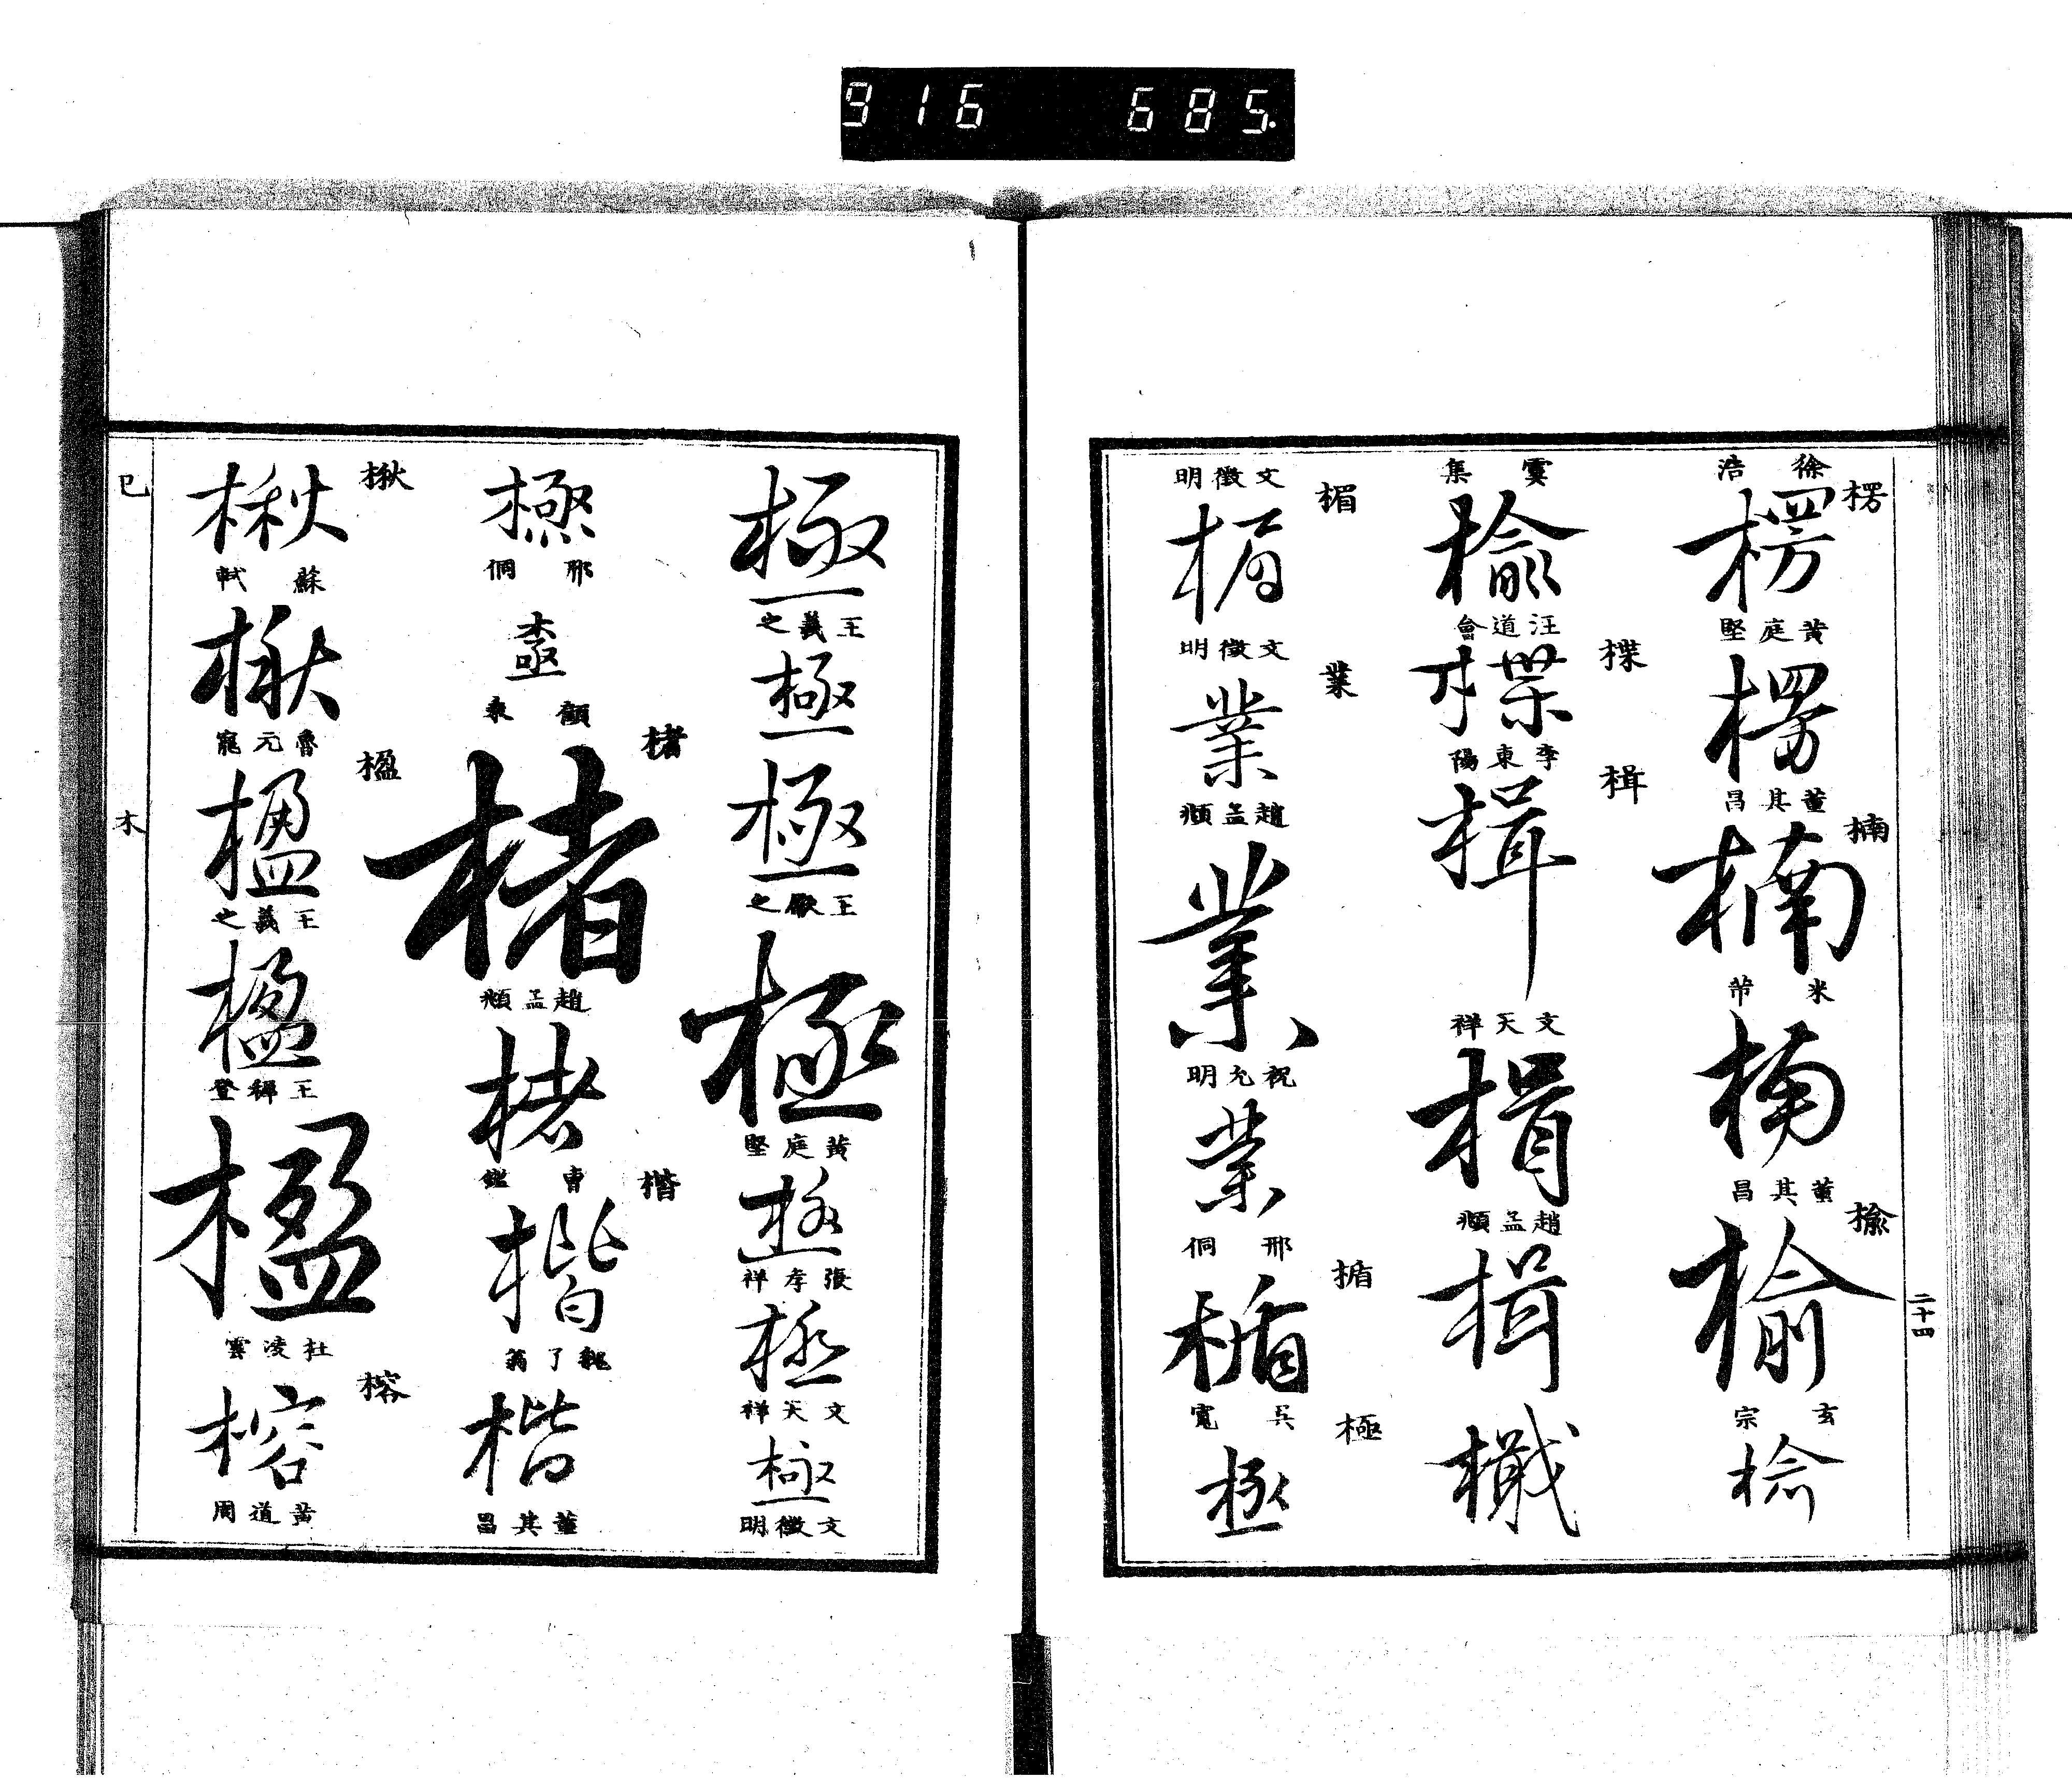 916 685.
二十四
楞
徐浩
楞
黃庭堅
楞
董其昌
楠
楠
米芾
楠
董其昌
榆
榆
玄宗
榆
虞集
榆
汪道會
楪
楪
李東陽
楫
楫
文天祥
楫
趙孟頫
楫
楣
文徵明
楣
文徵明
業
業
趙孟頫
業
祝允明
業
邢侗
楯
楯
吳寬
極
極
極
王羲之
極
極
王獻之
極
黃庭堅
極
張孝祥
極
文天祥
極
文徵明
極
邢侗
顧
楮
楮
趙孟頫
楮
曹鑑
楷
楷
魏了翁
楷
董其昌
楸
楸
蘇軾
楸
魯元寵
楹
楹
王羲之
楹
王穉登
楹
杜凌雲
榕
榕
黃道周
巳
木